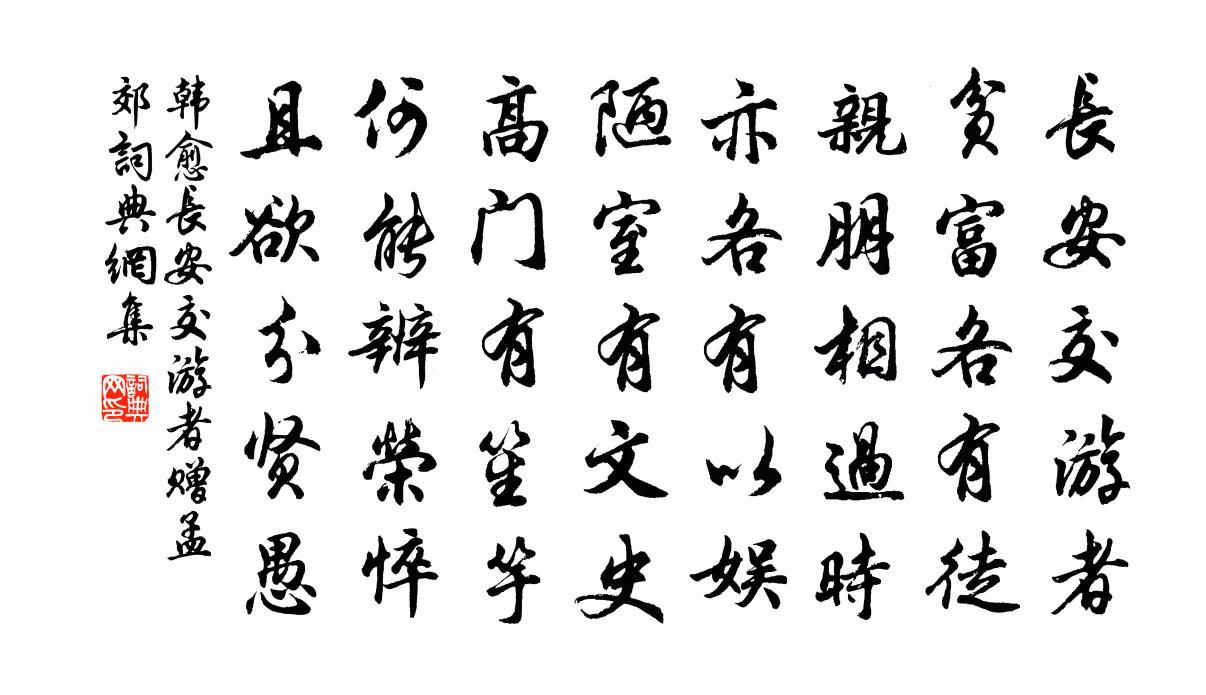 長安交游者
貧富各有徒
親朋相過時
亦各有以娱
陋室有文史
高门有笙竽
何能辨榮悴
且欲分贤愚
韩愈長安交游者赠孟
郊詞典網集
詞典
网印